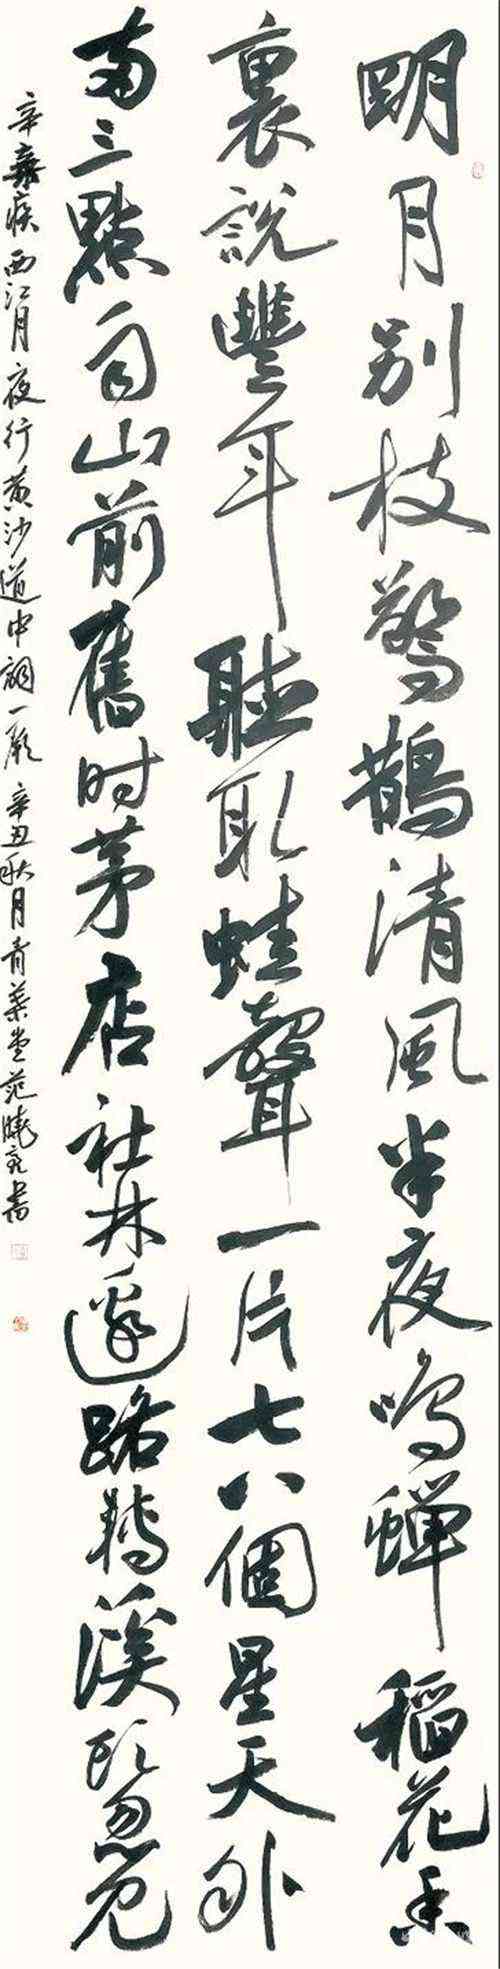 明月别枝驚鵲清風半夜鳴蟬稻花香
裏說豐年聽取蛙聲一片七八個星天外
两三點雨山前舊时茅店社林邊路轉溪頭忽見
辛棄疾西江月夜行黄沙道中詞一闋 辛丑秋月青 堂范曉亮書